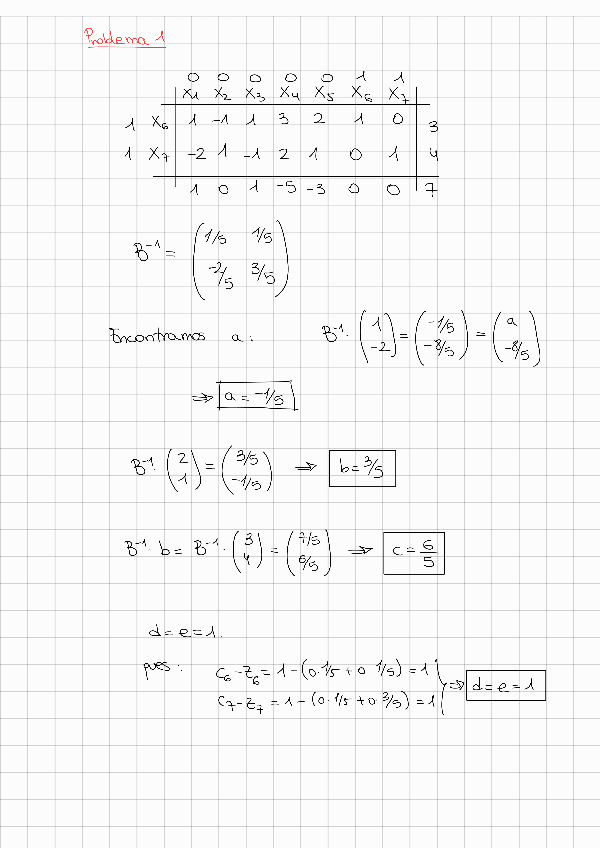 Problema 1
0 0 0 0 0 1 1
X1 X2 X3 X4 X5 X6 X7
1 X6 1 -1 1 3 2 1 0 3
1 X7 -2 1 -1 2 1 0 1 4
1 0 1 -5 -3 0 0 7
B⁻¹ = (1/5 1/5
-2/5 3/5)
Encontramos a: B⁻¹· (1 -2) = (-1/5 -8/5) = (a -8/5)
⇒ a = -1/5
B⁻¹· (2 1) = (3/5 -1/5) ⇒ b = 3/5
B⁻¹· b = B⁻¹· (3 4) = (7/5 6/5) ⇒ c = 6/5
d = e = 1.
pues: C6 - Z6 = 1 - (0·1/5 + 0·1/5) = 1
C7 - Z7 = 1 - (0·1/5 + 0·3/5) = 1 ⇒ d = e = 1